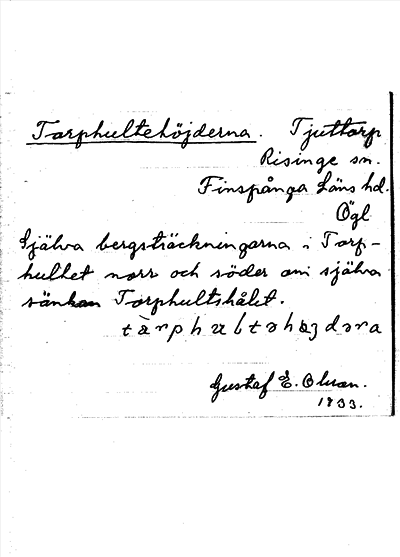 Torphultehöjderna. Tjuttorp
Risinge sn.
Finspånga Läns hd.
Ögl
Själva bergsträckningarna i Torp-
hulhet norr och söder om själva
sänkan Torphultshålet.
tàrphultəhөjdəra
Gustaf E. Olsson.
1933.